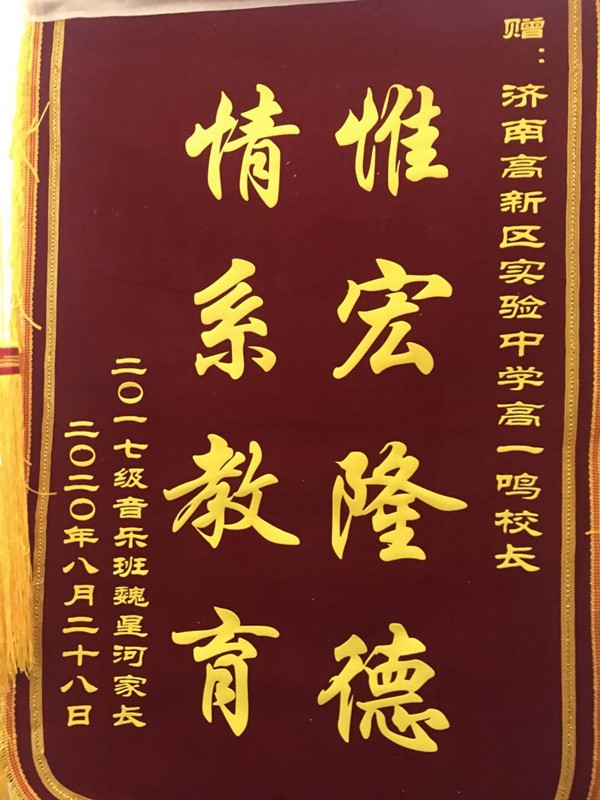 赠：济南高新区实验中学高一鸣校长
惟宏隆德
情系教育
二〇一七级音乐班魏星河家长
二〇二〇年八月二十八日